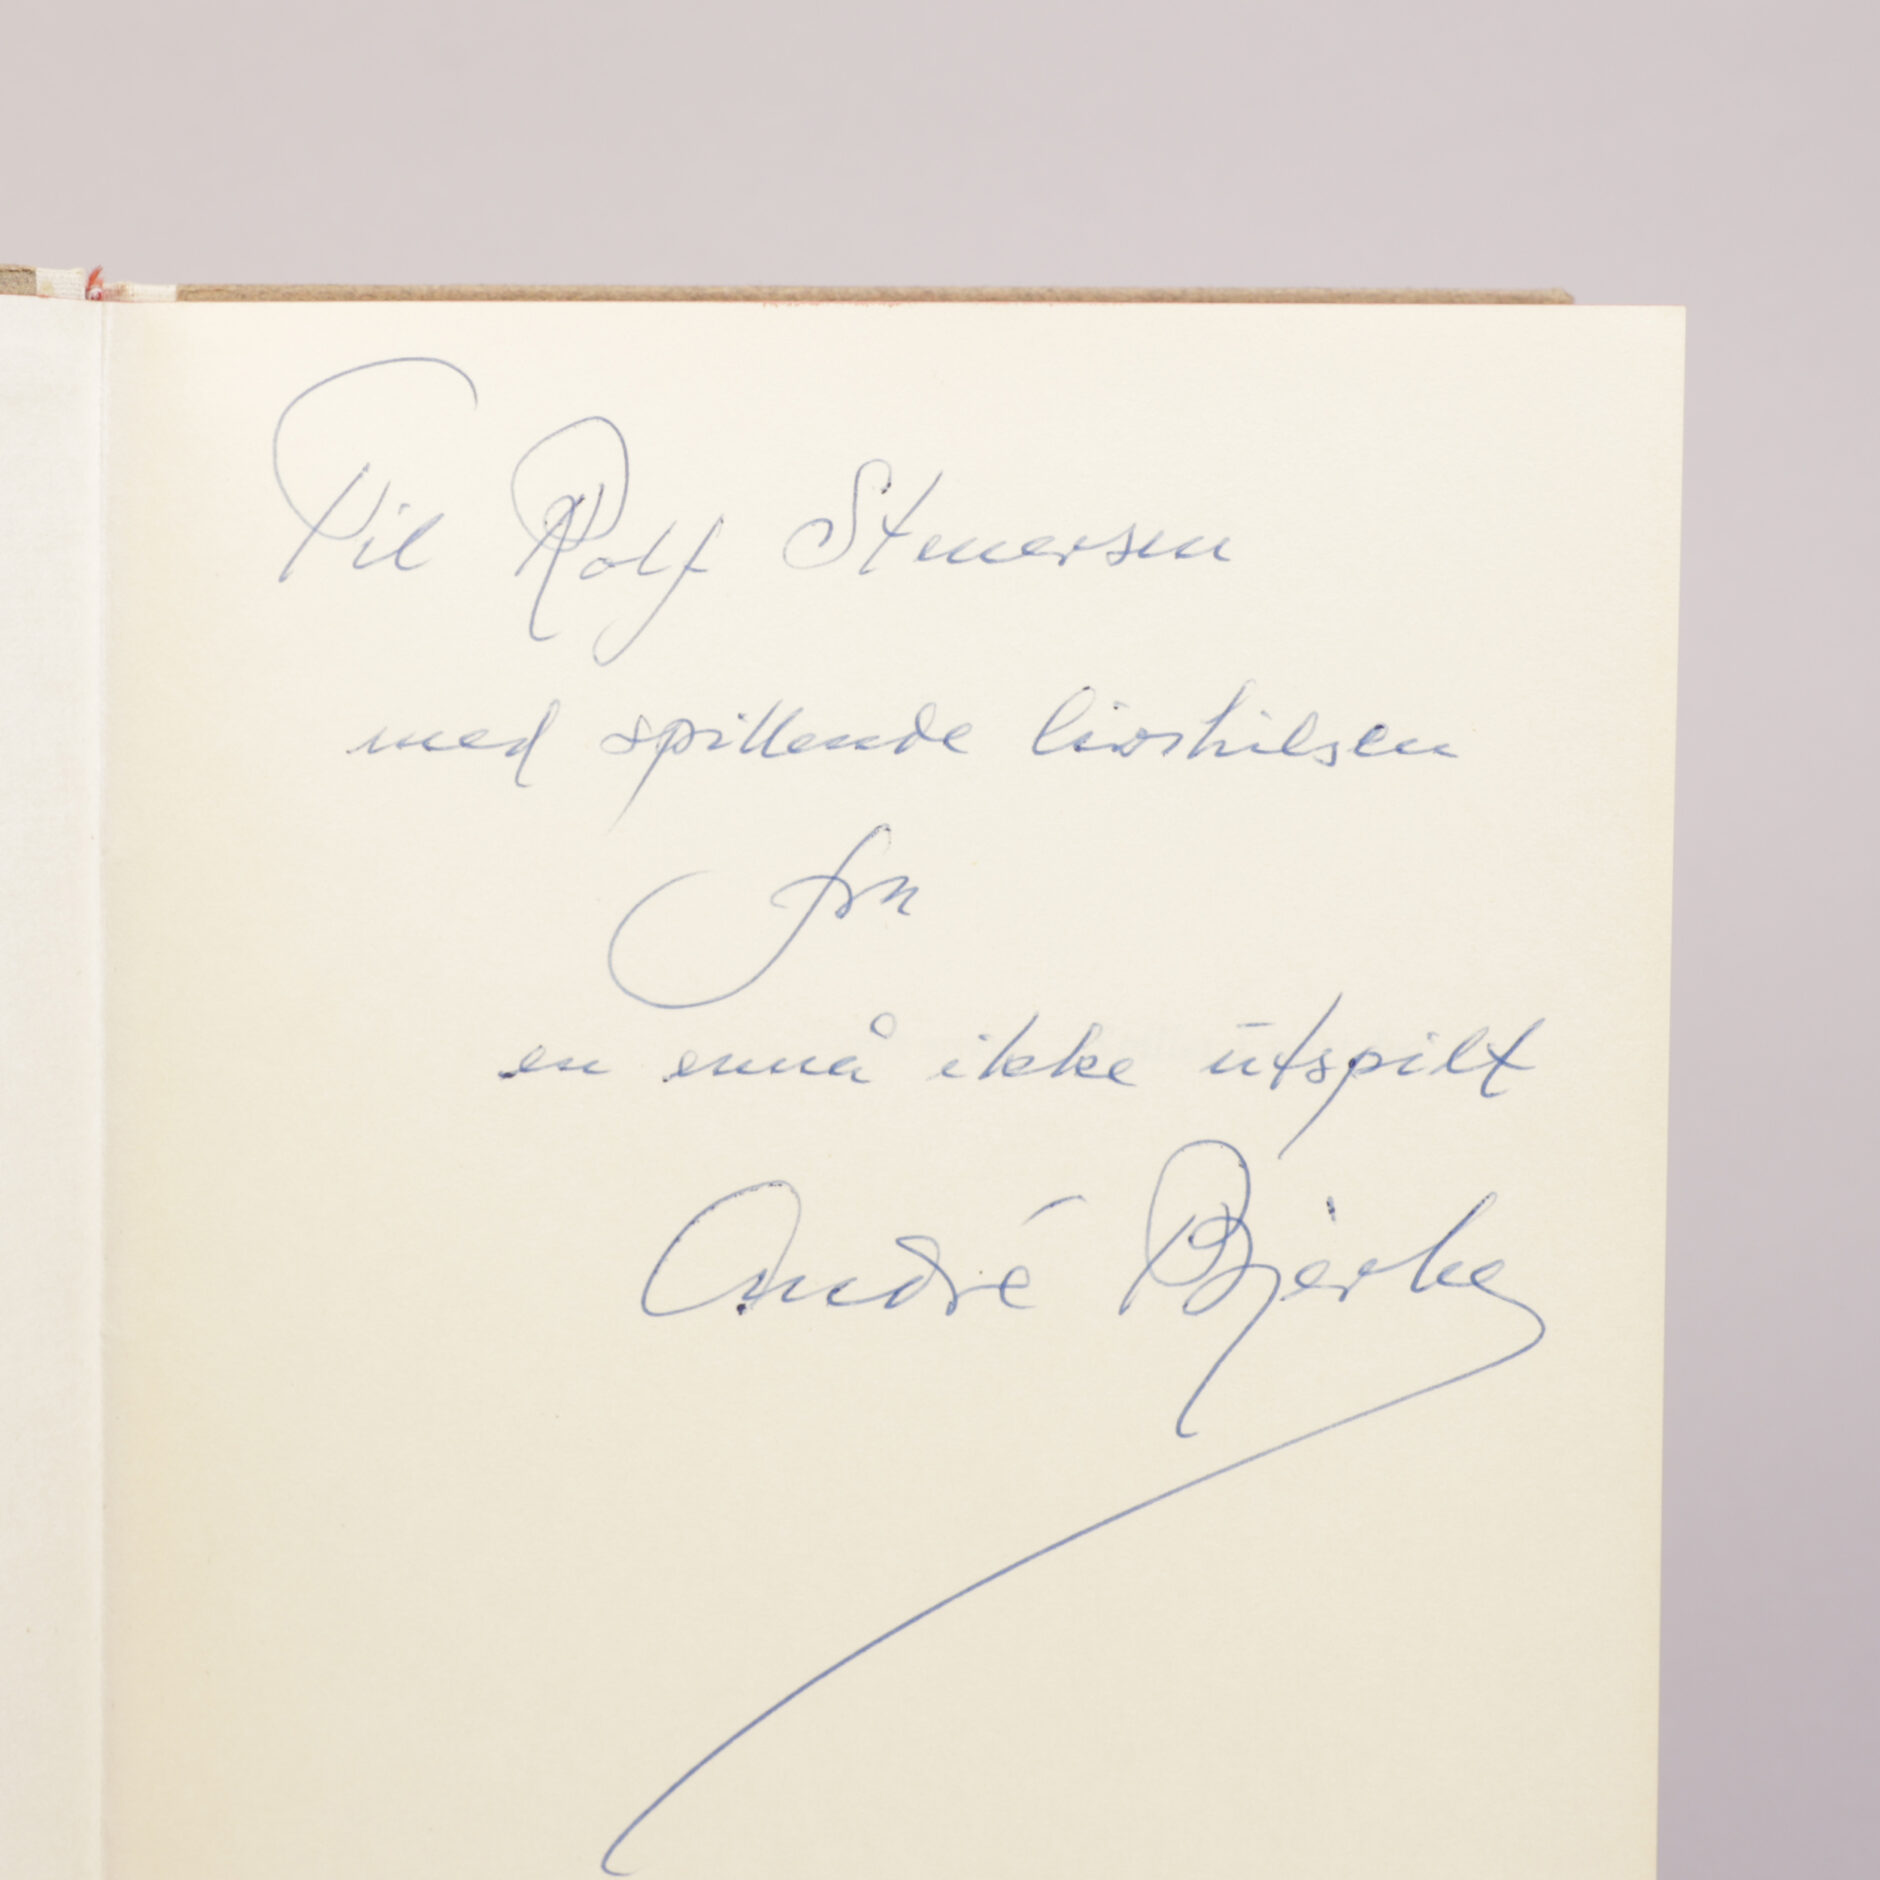 Til Rolf Stenersen
med spillende livshilsen
fra
en ennå ikke utspilt
André Bjerke